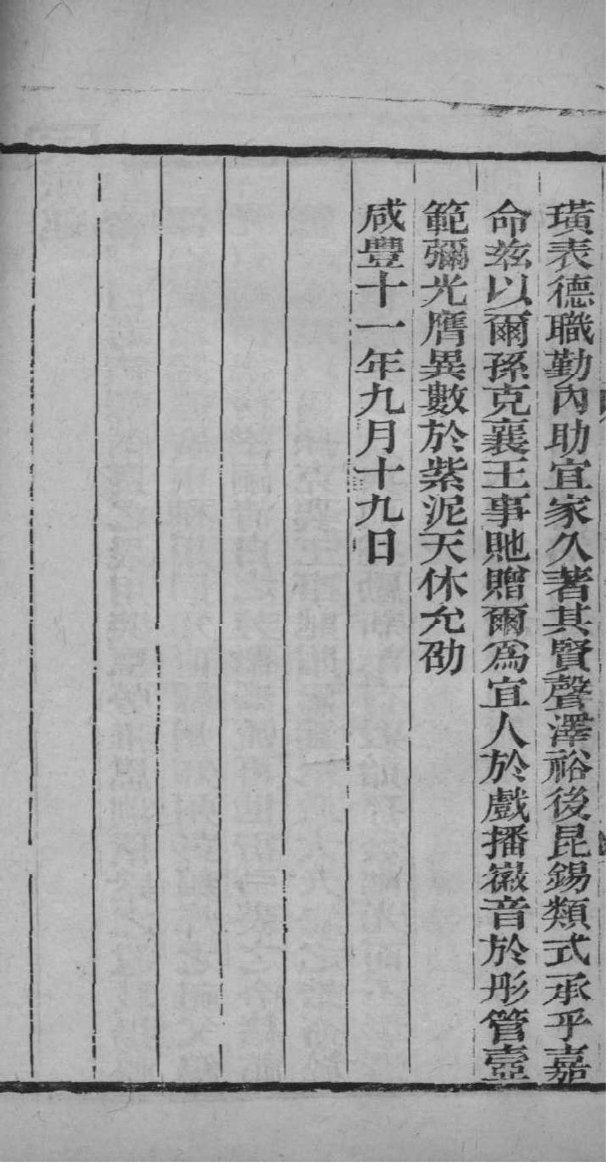 璜表德職勤內助宜家久著其賢聲澤裕後昆錫類式承乎嘉
命兹以爾孫克襄王事貤贈爾為宜人於戲播徽音於彤管壼
範彌光膺異數於紫泥天休允劭
咸豐十一年九月十九日